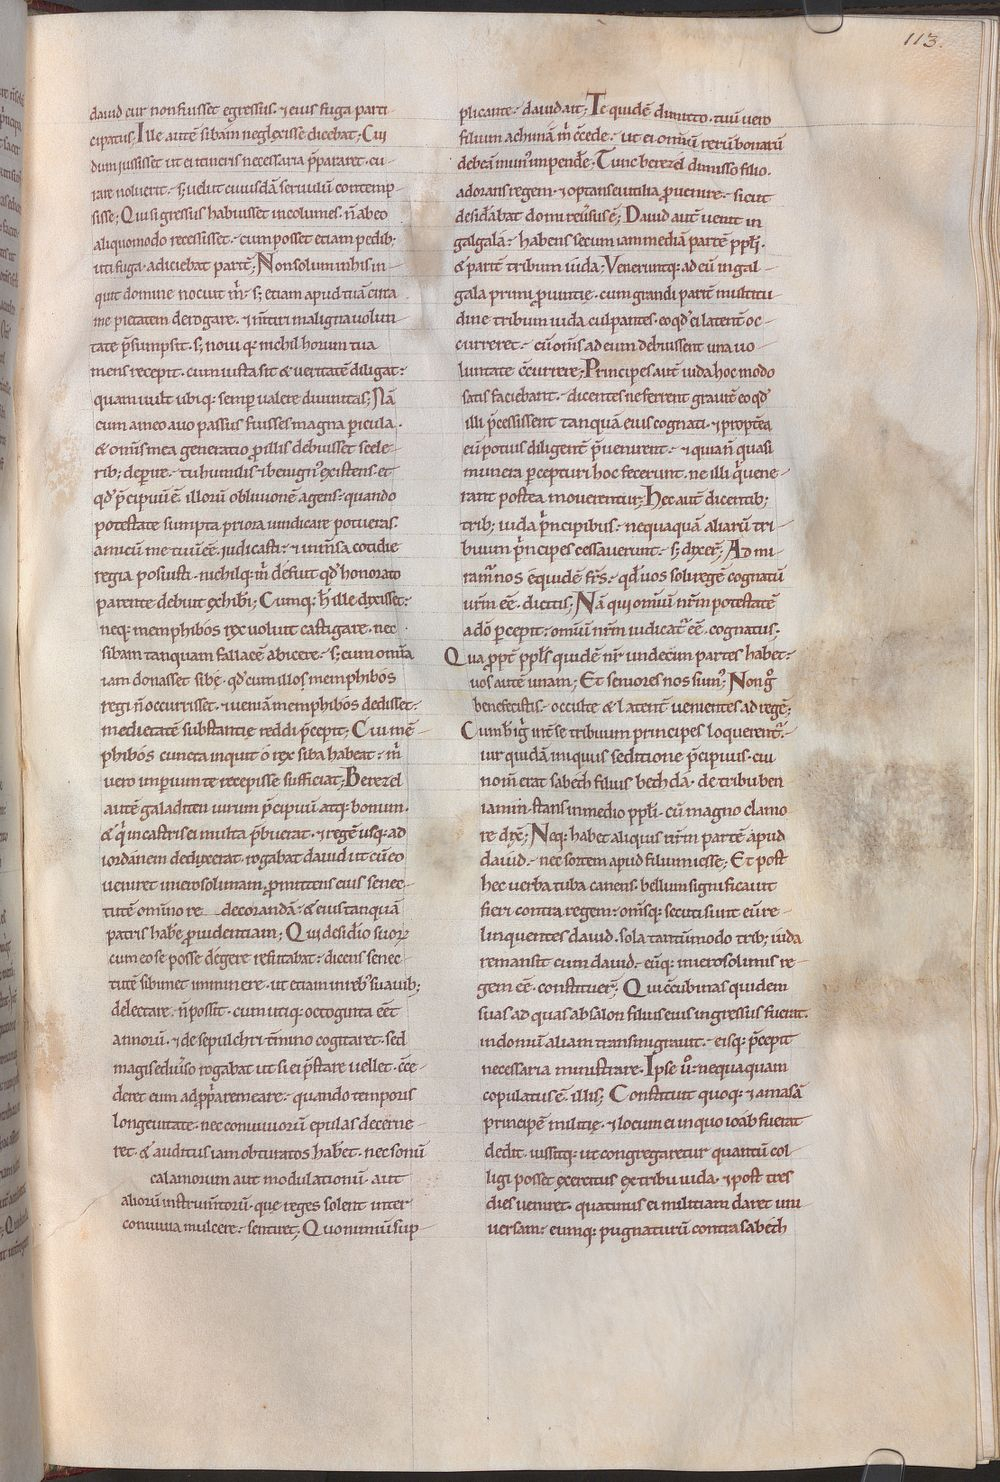 113.
dauid cur non fuisset egressus. & eius fuga parti-
cipatus; Ille autē sibam neglexisse dicebat; Cui
dum iussisset ut ei itineris necessaria p̄pararet. cu-
rare noluerit. s; uelut cuiusdā seruulū contemp-
sisse; Qui si gressus habuisset incolumes. n̄ ab eo
aliquomodo recessisset. cum posset etiam pedib;
uti fuga. adiciebat partē; Non solum in his in-
quit domine nocuit m̄. s; etiam apud tuā circa
me pietatem derogare. & m̄tiri maligna uolun-
tate p̄sumpsit. s; noui q; nichil horum tua
mens recepit. cum iusta sit & ueritatē diligat.
quam uult ubiq; semp ualere diuinitas; Nā
cum a meo auo passus fuisses magna picula.
& om̄is mea generatio p illis debuisset scele-
rib; deperire. tu humilis & benignꝰ existens. et
qd̓ p̄cipuū ē. illorū obliuionē agens. quando
potestate sumpta priora iudicare potueras.
amicū me tuū ēē iudicasti. & in m̄sa cotidie
regia posuisti. nichilq; m̄ defuit qd̓ honorato
parente debuit exhiberi; Cumq; h̄ ille dixisset.
neq; memphibos rex uoluit castigare. nec
sibam tanquam fallacē abicere. s; cum om̄ia
iam donasset sibę. qd̓ cum illo s; memphibos
regi n̄ occurrisset. & ueniā memphibos dedisset.
medietatē substantię reddi p̄cepit; Cui mē-
phibos cuncta inquit o rex siba habeat. m̄
uero imperium te recepisse sufficiat; Berezel
autē galaditen uirum p̄cipuū atq; bonum.
& q̓ in castris ei multa p̄buerat. & regē usq; ad
iordanem deduxerat. rogabat dauid ut cū eo
ueniret in ierosolimam. pmittens eius senec-
tutē omino re decorandā. & eius tanquā
patris habēe puidentiam; Qui desid̓io suoꝝ
cum eo se posse degere refutabat. dicens senec-
tutē sibimet imminere. ut etiam in rebꝰ suauib;
delectare. n̄ possit. cum utiq; octoginta eēt
annorū. & de sepulchri t̓mino cogitaret. sed
magis ed̓uerso rogabat ut si ei p̄stare uellet. cc̄e-
deret eum ad ppā remeare. quando temporis
longeuitate. nec conuiuiorū epulas decerne-
ret. & auditus iam obturatos habet. nec sonū
calamorum aut modulationū. aut
aliorū instrum̄torū. que reges solent inter
conuiuia mulcere. sentiret; Quo nimiū sup-
plicante. dauid ait; Te quidē dimitto. tuū uero
filium achimā m̄ cc̄ede. ut ei om̄iū rerū bonarū
debeā munꝰ impendēe; Tunc berezel dimisso filio.
adorans regem. & optans ei utilia prouenire. sicut
desid̓abat domi reuersus ē; Dauid aut̄ uenit in
galgala. habens secum iam mediā partē ppl̓i.
& partē tribum iuda; Veneruntq; ad eū in gal-
gala primi puintię. cum grandi parit̓ multitu-
dine tribum iuda culpantes. eo qd̓ ei latent̓ oc-
curreret. cū om̄s ad eum debuissent una uo-
luntate cc̄urrere; Principes aut̄ iuda hoc modo
satis faciebant. dicentes ne ferrent grauit̓ eo qd̓
illi p̄cessissent tanquā eius cognati. & propt̓ea
eū potius diligent̓ p̄uenirent. & quia n̄ quasi
munera percepturi hoc fecerunt. ne illi q̓ uene-
rant postea mouerentur; Hec aut̄ dicentib;
trib; iuda p̓ncipibus. nequaquā aliarū tri-
buum p̓ncipes cessauerunt. s; dixer̄; Ad mi-
ram̓ nos equidē fr̄s. qd̓ uos soli regē cognatū
ur̄m ēē. dicitis; Nā qui om̄iū nr̄m potestatē
a dō percepit. om̄iū nr̄m iudicat̓ ēē. cognatus.
Qua ppt̓ ppl̓s quidē nr̄ undecim partes habet.
uos autē unam; Et seniores nos sumꝰ; Non g̊
benefecistis. occulte & latent̓ uenientes ad regē;
Cum h̄ ig̓ int̓ se tribuum principes loquerent̓.
uir quidā iniquus seditione p̄cipuus. cui
nom̄ erat sabech filius bechda. de tribu ben
iamin. stans in medio ppl̓i. cū magno clamo
re dix̄; Neq; habet aliquis nr̄m partē apud
dauid. nec sortem apud filium iesse; Et post
hec uerba tuba canens. bellum significauit
fieri contra regem. om̄sq; secuti sunt eū re-
linquentes dauid. sola tantūmodo trib; iuda
remansit cum dauid. eūq; in ierosolimis re-
gem ēē. constituer̄; Qui cc̄ubinas quidem
suas ad quas absalon filius eius ingressus fuerat.
in domū aliam transmigrauit. eisq; p̄cepit
necessaria ministrare. Ipse ů. nequaquam
copulatus ē. illis; Constituit quoq; & amasā
principē militię. & locum ei in quo ioab fuerat
dedit. iussitq; ut congregaretur quantū col-
ligi posset exercitus ex tribu iuda. & post tres
dies ueniret. quatinus ei militiam daret uni
uersam. eumq; pugnaturū contra sabech